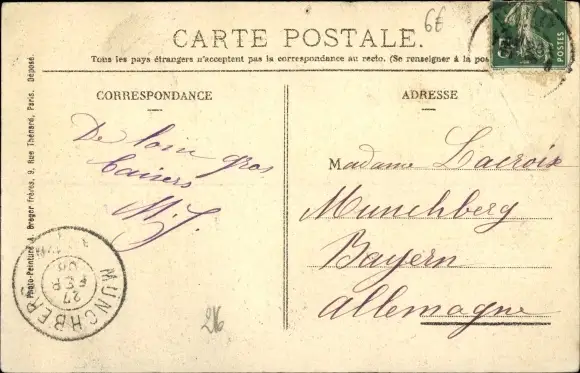 6€
CARTE POSTALE.
Tous les pays étrangers n'acceptent pas la correspondance au recto. (Se renseigner à la pos
POSTES
CORRESPONDANCE
ADRESSE
De loin gros
baisers
M. J.
Madame Lacroix
Munchberg
Bayern
Allemagne
Photo-Peinture A. Breger frères, 9, Rue Thénard, Paris. Déposé.
MUNCHBERG
27
FEB
08
26